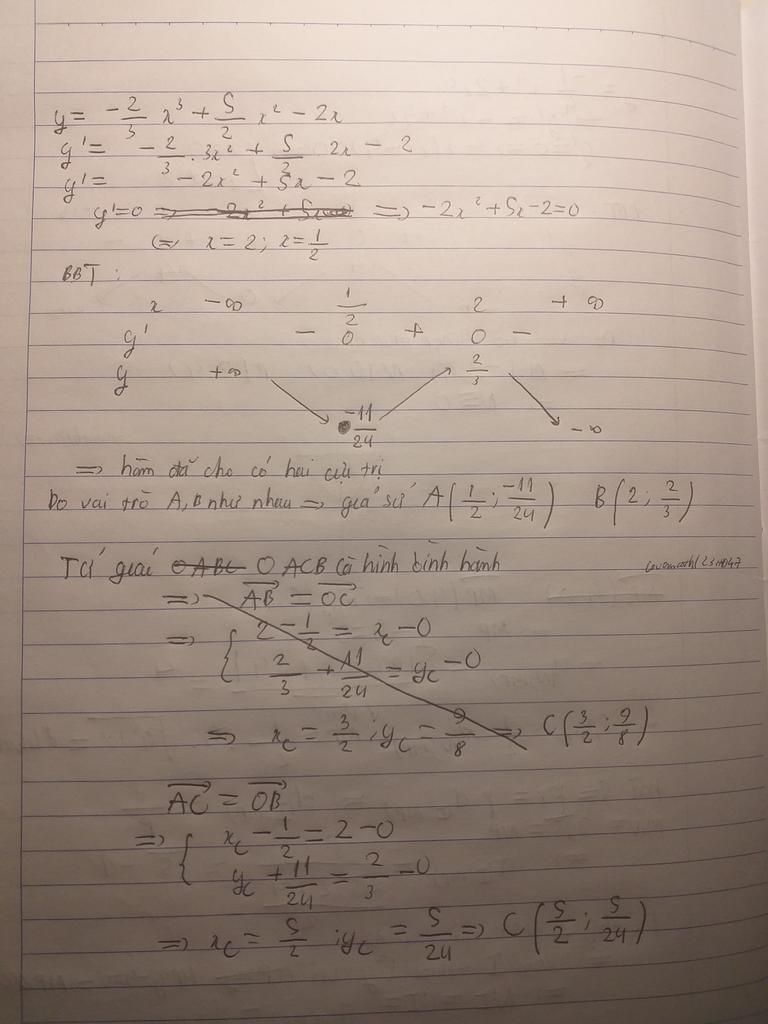 y = -2/3 x³ + 5/2 x² - 2x
y' = -2/3 . 3x² + 5/2 2x - 2
y' = -2x² + 5x - 2
y'=0 => -2x² + 5x - 2 = 0
<=> x = 2; x = 1/2
BBT :
x -∞ 1/2 2 +∞
y' - 0 + 0 -
y +∞ 2/3
-11/24 -∞
=> hàm đã cho có hai cực trị
Do vai trò A, B như nhau => giả sử A(1/2 ; -11/24) B(2 ; 2/3)
Tứ giác OABC OACB là hình bình hành
=> AB = OC
=> { 2 - 1/2 = x_C - 0
2/3 + 11/24 = y_C - 0
=> x_C = 3/2 ; y_C = 9/8 => C(3/2 ; 9/8)
AC = OB
=> { x_C - 1/2 = 2 - 0
y_C + 11/24 = 2/3 - 0
=> x_C = 5/2 ; y_C = 5/24 => C(5/2 ; 5/24)